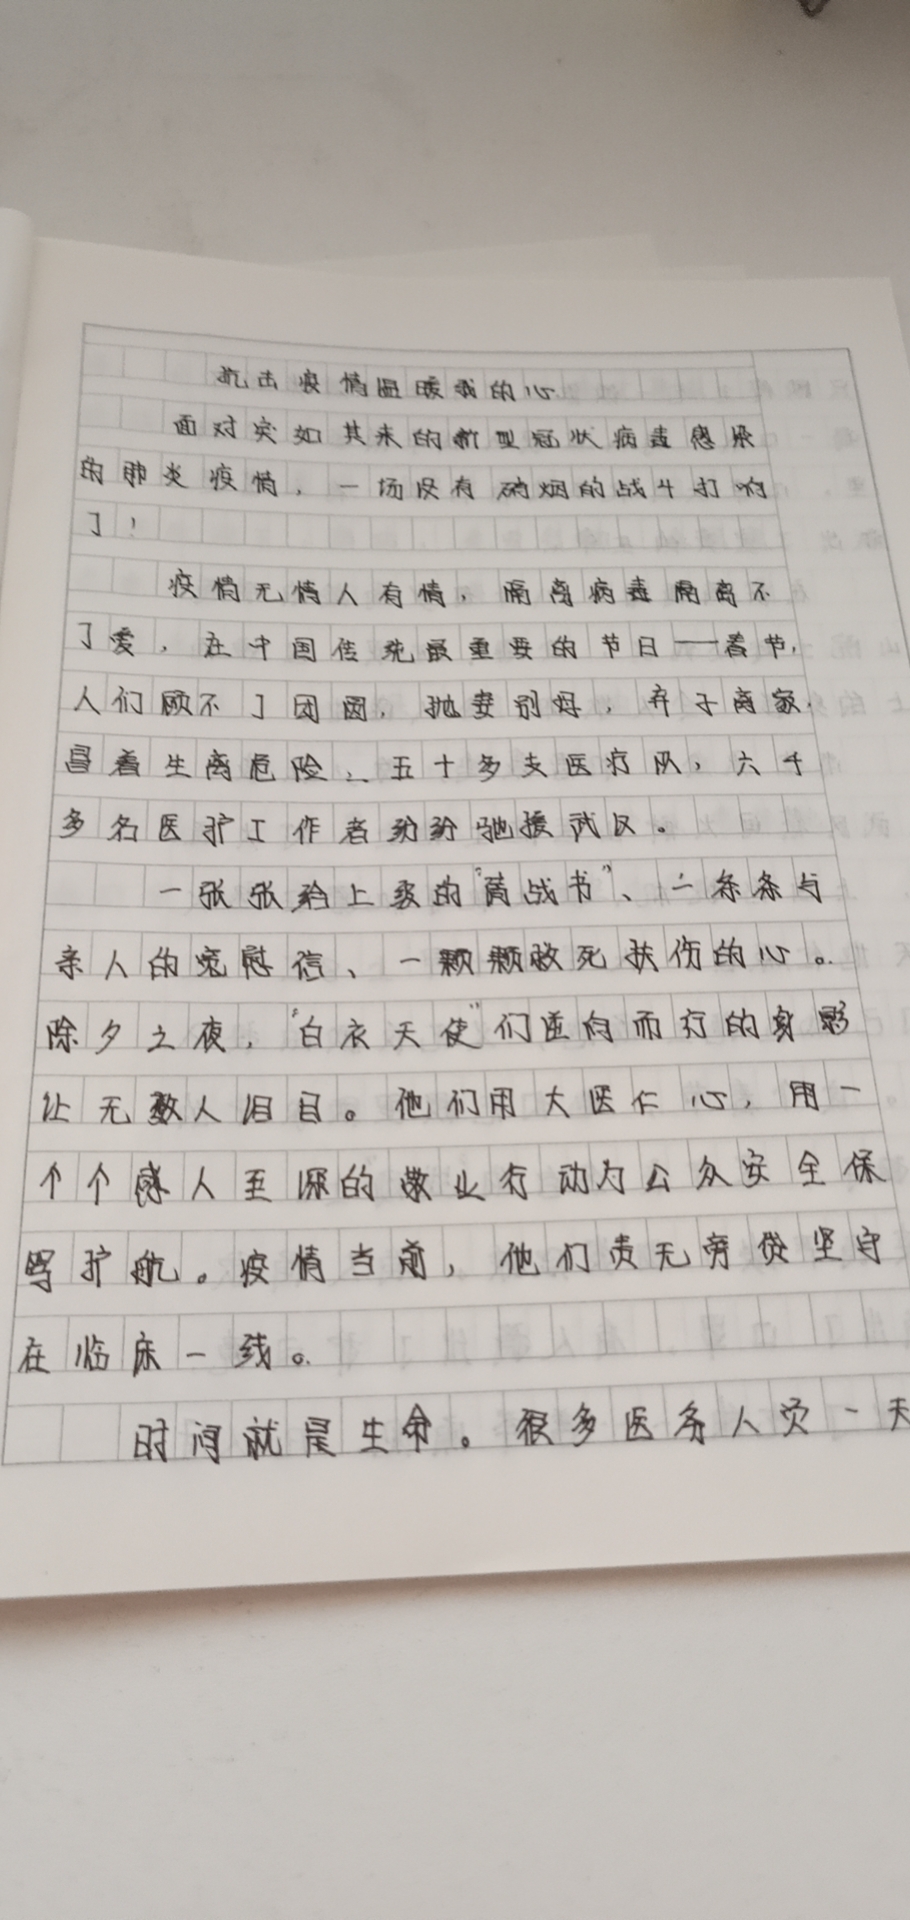 抗击疫情温暖我的心
面对突如其来的新型冠状病毒感染
的肺炎疫情，一场没有硝烟的战斗打响
了！
疫情无情人有情，隔离病毒隔离不
了爱，在中国传统最重要的节日——春节，
人们顾不了团圆，抛妻别好，弃子离家，
冒着生离危险、五十多支医疗队，六千
多名医护工作者纷纷驰援武汉。
一张张给上级的“请战书”、一条条与
亲人的宽慰信、一颗颗救死扶伤的心。
除夕之夜，“白衣天使”们逆向而行的身影
让无数人泪目。他们用大医仁心，用一
个个感人至深的敬业行动为公众安全保
驾护航。疫情当前，他们责无旁贷坚守
在临床一线。
时间就是生命。很多医务人员一天